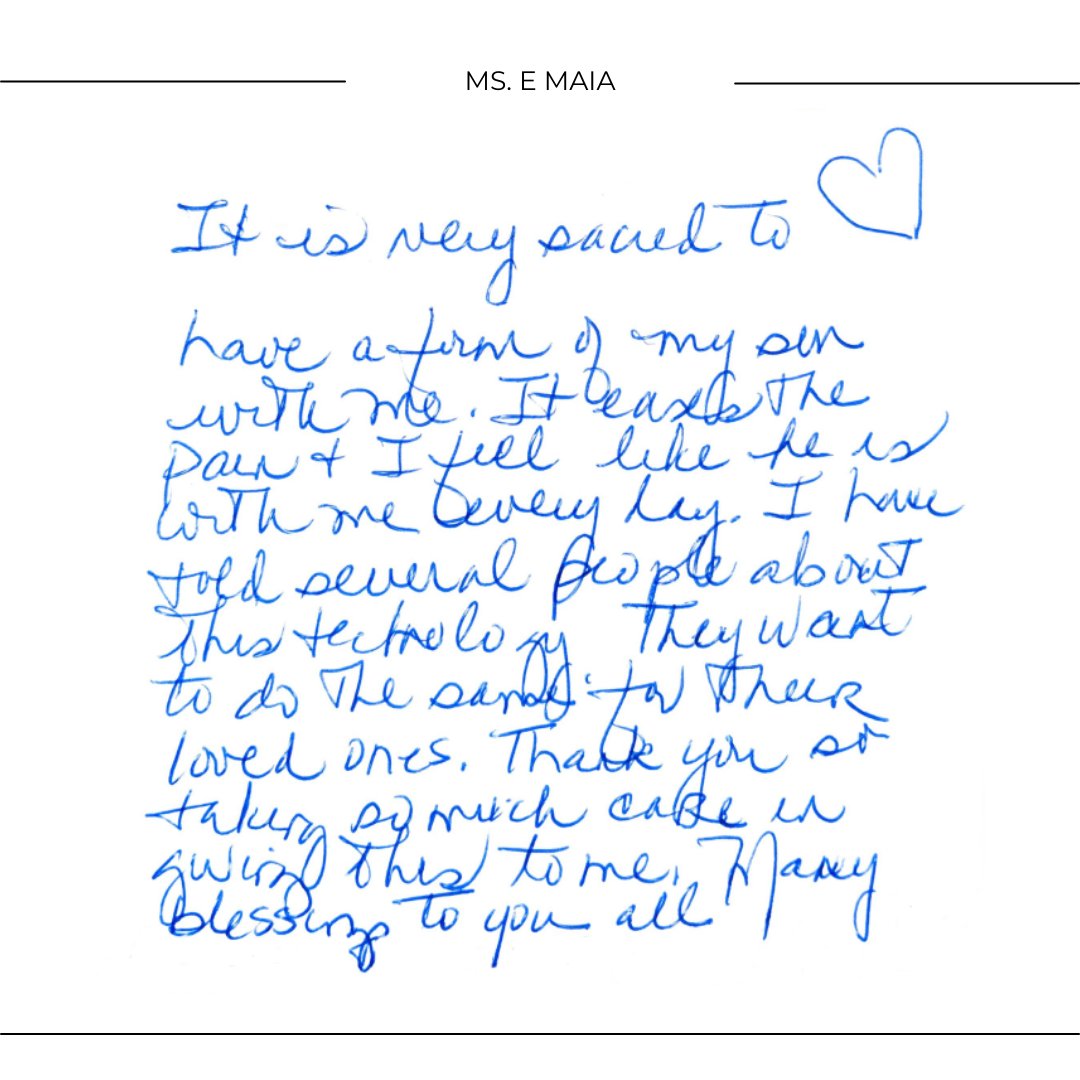 MS. E MAIA
It is very sacred to
have a form of my son
with me. It eases the
pain + I feel like he is
with me every day. I have
told several people about
this technology They want
to do the same for their
loved ones. Thank you so
taking so much care in
giving this to me. Many
blessings to you all